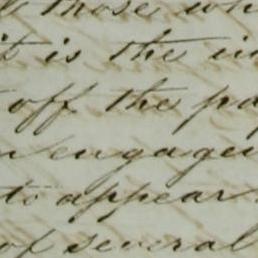 those wh
it is the in
off the pa
engage
to appear
of several